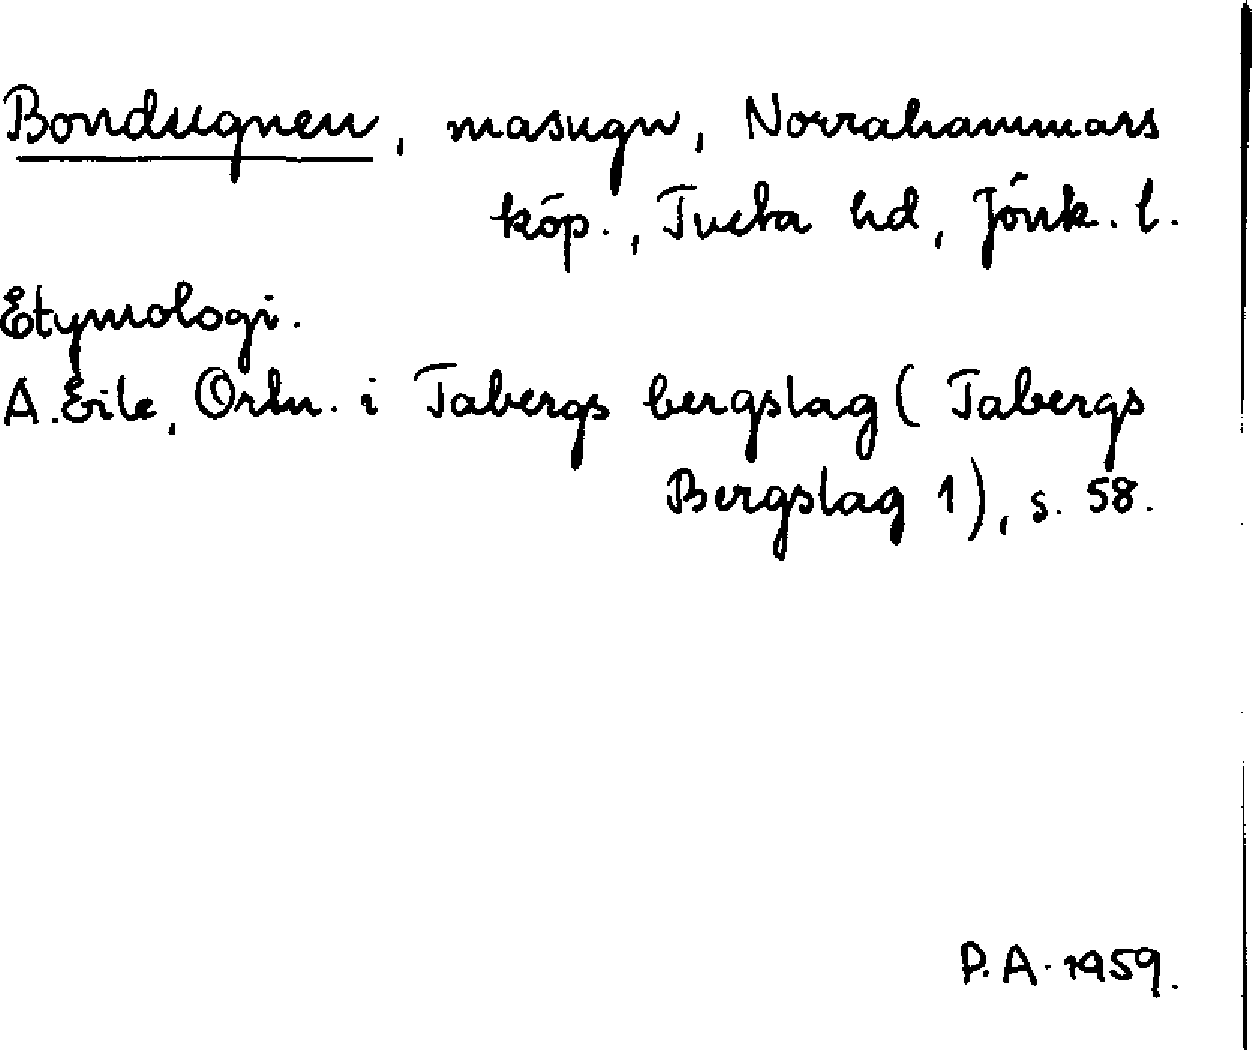 Bondugnen, masugn, Norrahammars
köp., Tveta hd, Jönk. l.
Etymologi.
A. Eile, Ortn. i Tabergs bergslag (Tabergs
Bergslag 1), s. 58.
P. A. 1959.